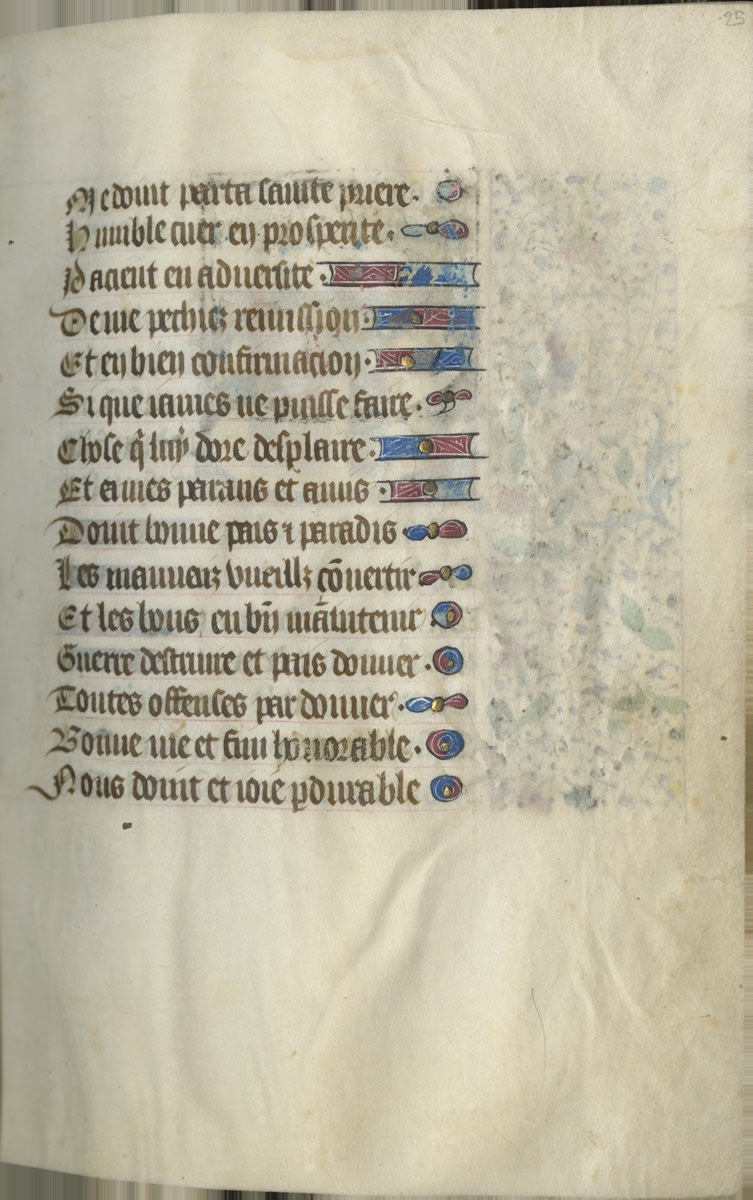 25
Me doint par ta sainte priere.
Humble cuer en prosperite.
Pacient en aduersite.
De me pechiez remission.
Et en bien confirmacion.
Si que iames ne puisse faire.
Chose q̃ luy doie desplaire.
Et a mes parans et amis.
Doint bonne pais ⁊ paradis
Les mauuaiz vueillz cõuertir
Et les bons en bñ mãintenir
Guerre destruire et pais donner.
Toutes offenses pardonner.
Bonne vie et finhonorable.
Nous doint et ioie ꝑdurable